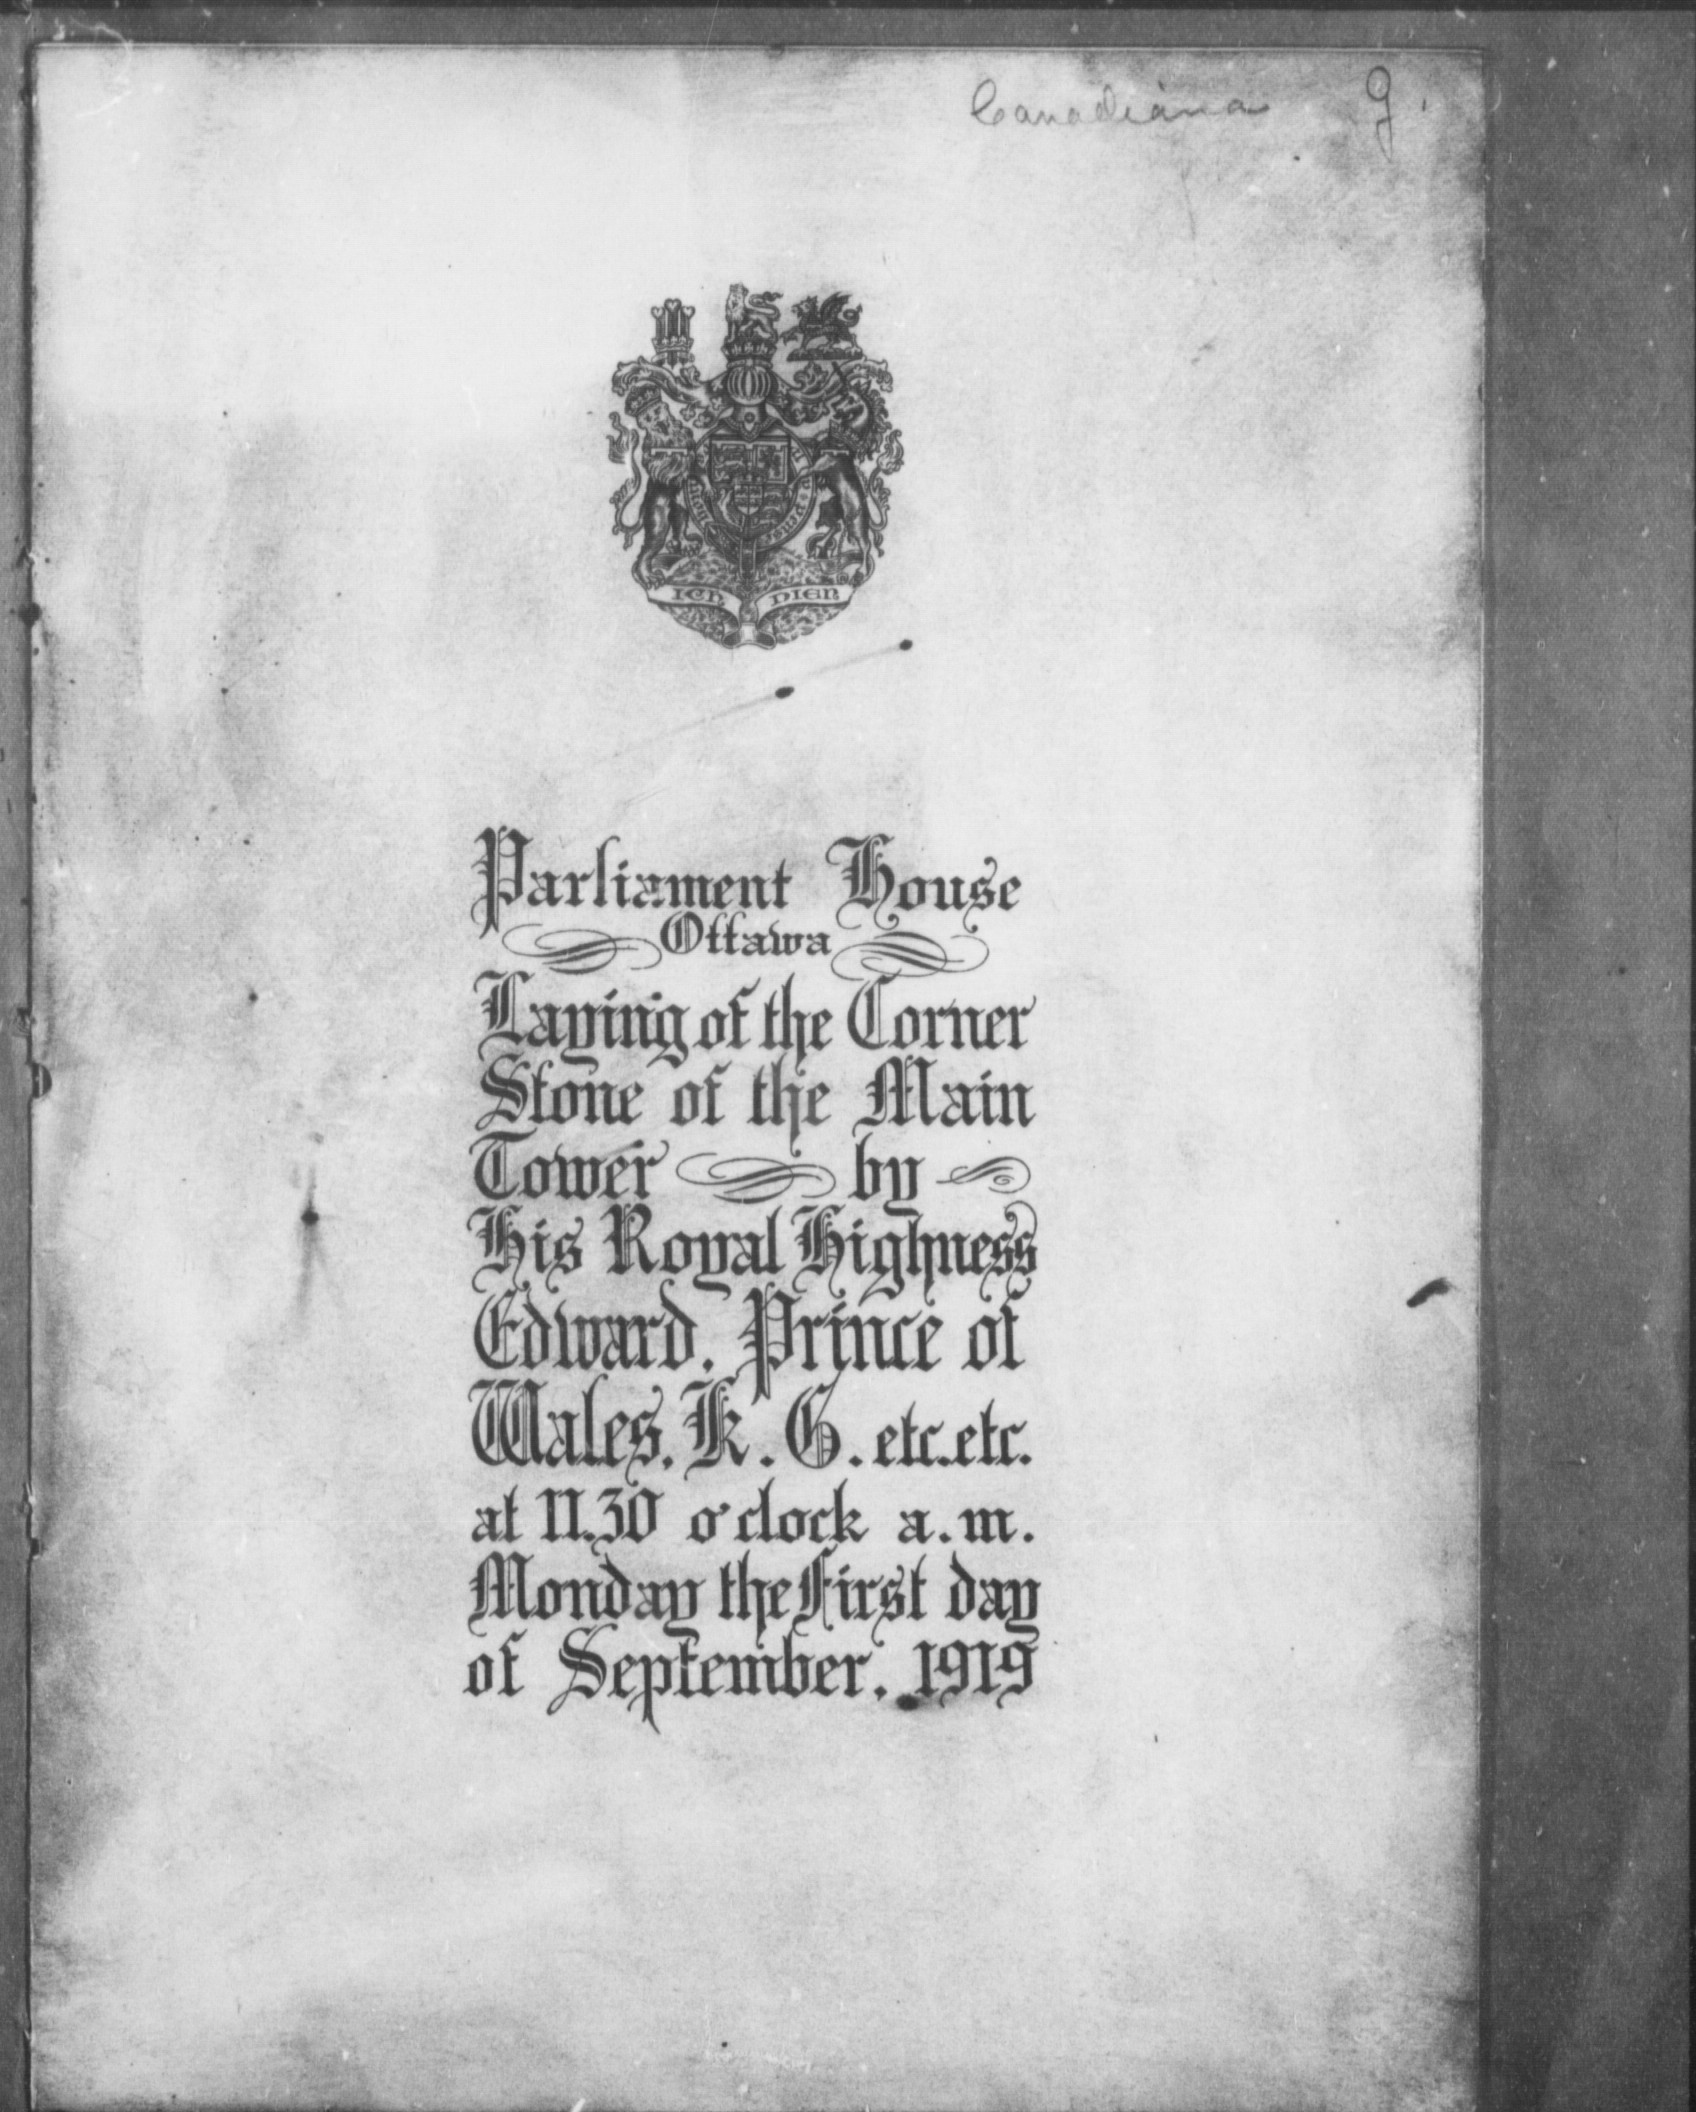 Canadiana g.
ICH DIEN
Parliament House
Ottawa
Laying of the Corner
Stone of the Main
Tower by
His Royal Highness
Edward, Prince of
Wales, K. G. etc. etc.
at 11.30 o'clock a.m.
Monday the First day
of September, 1919